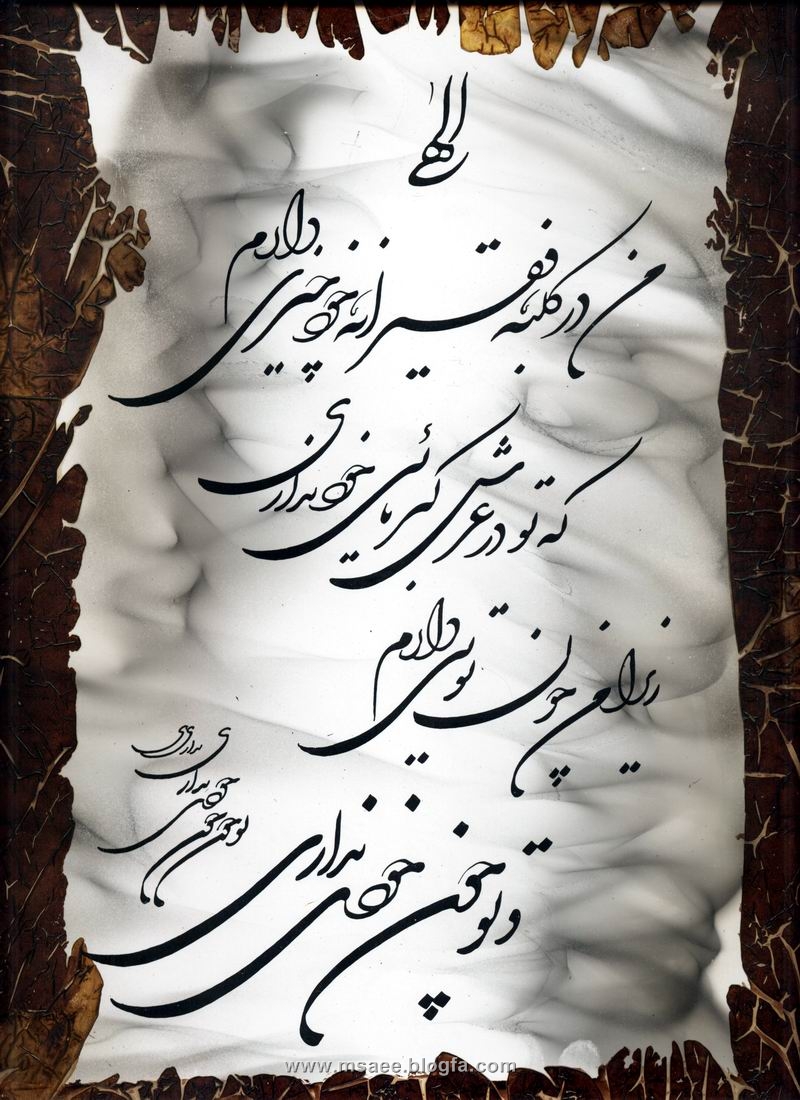 الهی
من در کلبه فقیرانه خود چیزی دارم
که تو در عرش کبریائی خود نداری
زیرا من چون تویی دارم
و تو چون خودی نداری
تو چون
چون
خودی
نداری
نداری
www.msaee.blogfa.com